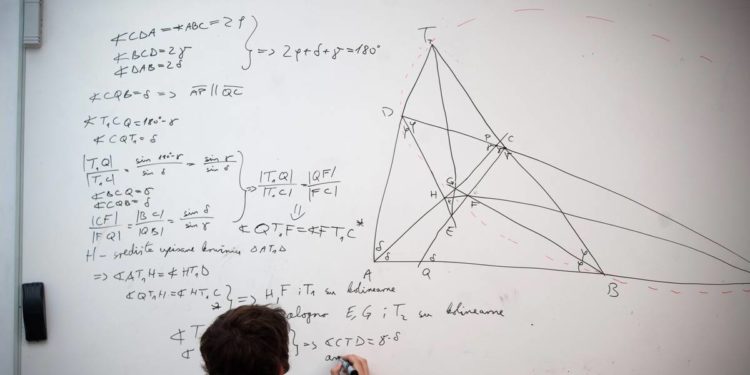 ∢CDA = ∢ABC = 2φ
∢BCD = 2γ
∢DAB = 2δ
=> 2φ+δ+γ=180°
∢CQB = δ => AP || QC
∢T₁CQ = 180°-γ
∢CQT₁ = δ
|T₁Q| / |T₁C| = sin 180°-γ / sin δ = sin γ / sin δ
∢BCQ = γ
∢CQB = δ
|CF| / |FQ| = |BC| / |QB| = sin δ / sin γ
=> |T₁Q| / |T₁C| = |QF| / |FC|
⇓
∢QT₁F = ∢FT₁C *
H - središte upisane kružnice ΔAT₁D
=> ∢AT₁H = ∢HT₁D
∢QT₁H = ∢HT₁C
*
=> H, F i T₁ su kolinearne
E, G i T₂ su kolinearne
=> ∢CTD = γ-δ
T₁
D
P
C
G
H
F
E
A
Q
B
φ
φ
γ
γ
δ
δ
δ
φ
φ